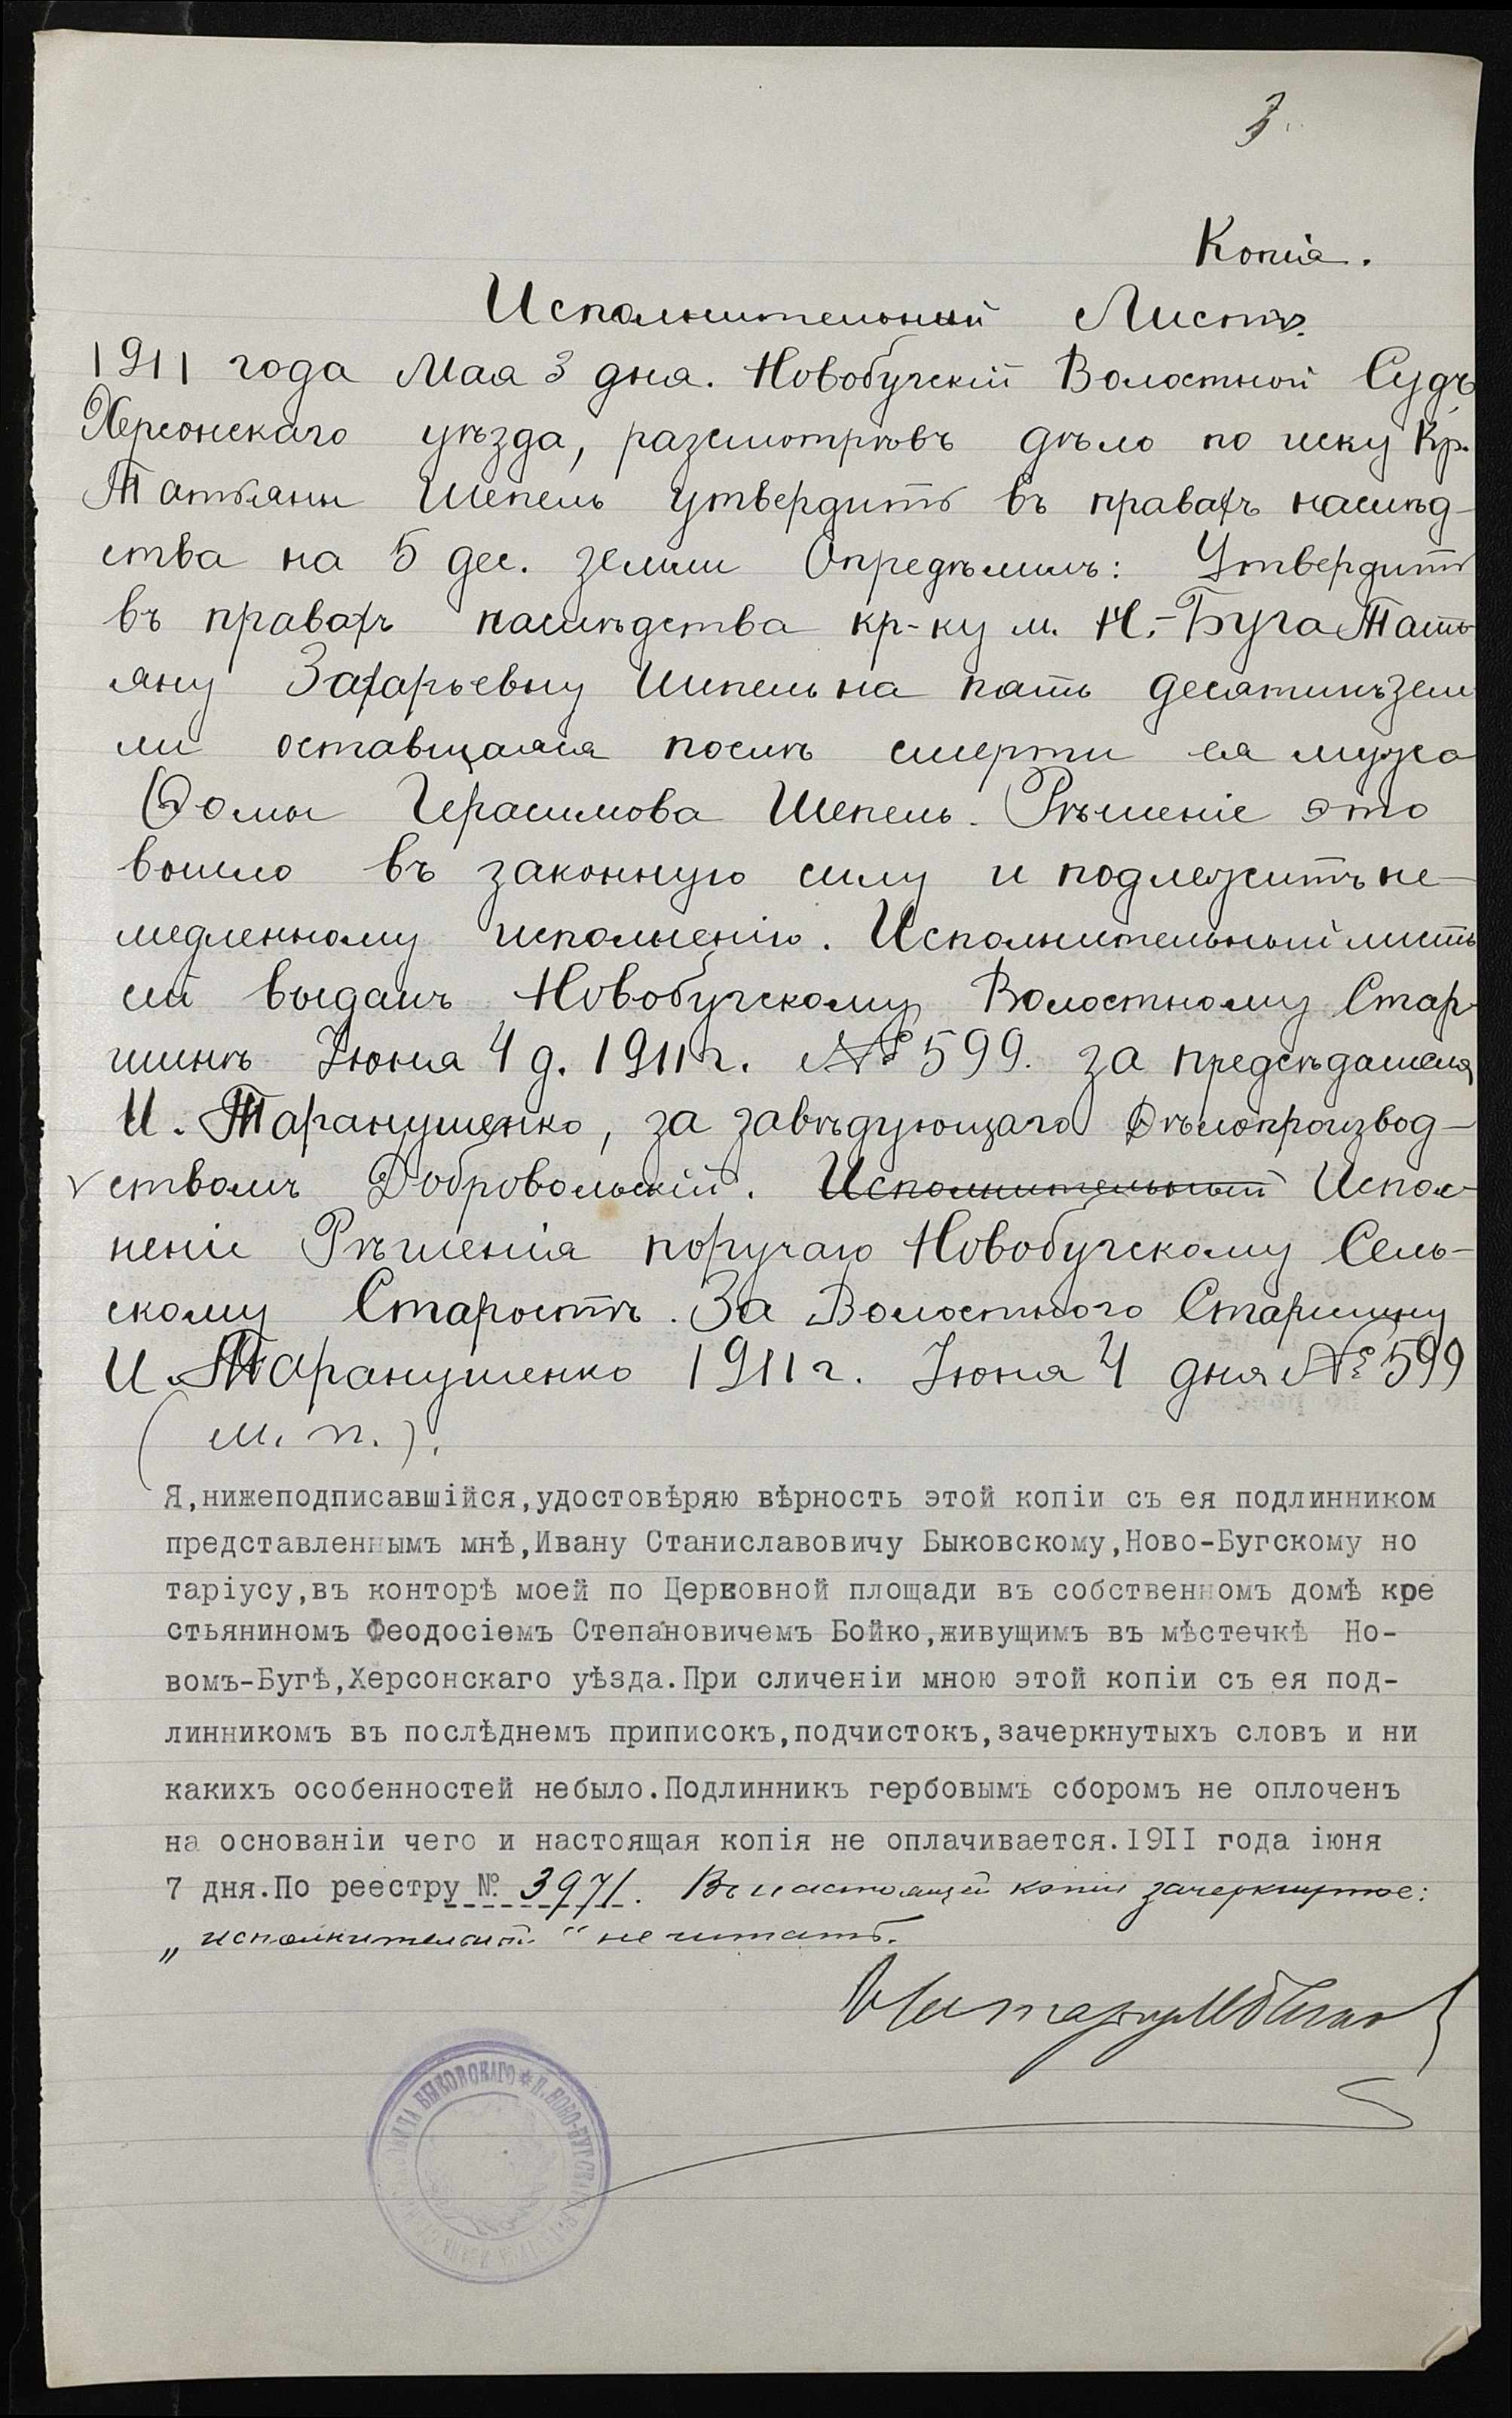 3.
Копія.
Исполнительный Листъ.
1911 года Мая 3 дня. Новобугскій Волостной Судъ
Херсонскаго уѣзда, разсмотрѣвъ дѣло по иску Кр.
Татьяны Шепель утвердить въ правахъ наслѣд-
ства на 5 дес. земли Опредѣлилъ: Утвердить
въ правахъ наслѣдства кр-ку м. Н.-Буга Тать
яну Захарьевну Шепель на пять десятинъ зем
ли оставщаяся послѣ смерти ея мужа
Фомы Герасимова Шепель. Рѣшеніе это
вошло въ законную силу и подлежитъ не-
медленному исполненію. Исполнительный листъ
сей выданъ Новобугскому Волостному Стар-
шинѣ Іюня 4 д. 1911 г. № 599. за предсѣдателя
И. Таранущенко, за завѣдующаго Дѣлопроизвод-
ствомъ Добровольскій. Исполнительный Испол-
неніе Рѣшенія поручаю Новобугскому Сель-
скому Старостѣ. За Волостного Старшину
И. Таранушенко 1911 г. Іюня 4 дня № 599
(м. п.).
Я,нижеподписавшійся,удостовѣряю вѣрность этой копіи съ ея подлинником
представленнымъ мнѣ,Ивану Станиславовичу Быковскому,Ново-Бугскому но
таріусу,въ конторѣ моей по Церковной площади въ собственномъ домѣ кре
стьяниномъ Феодосіемъ Степановичемъ Бойко,живущимъ въ мѣстечкѣ Но-
вомъ-Бугѣ,Херсонскаго уѣзда.При сличеніи мною этой копіи съ ея под-
линникомъ въ послѣднемъ приписокъ,подчистокъ,зачеркнутыхъ словъ и ни
какихъ особенностей небыло.Подлинникъ гербовымъ сборомъ не оплоченъ
на основаніи чего и настоящая копія не оплачивается.1911 года іюня
7 дня.По реестру №. 3971. Въ настоящей копіи зачеркнутое:
„исполнительный" не читать.
Нотаріусъ
БЫКОВСКАГО * Н. НОВО-БУГСКІЙ